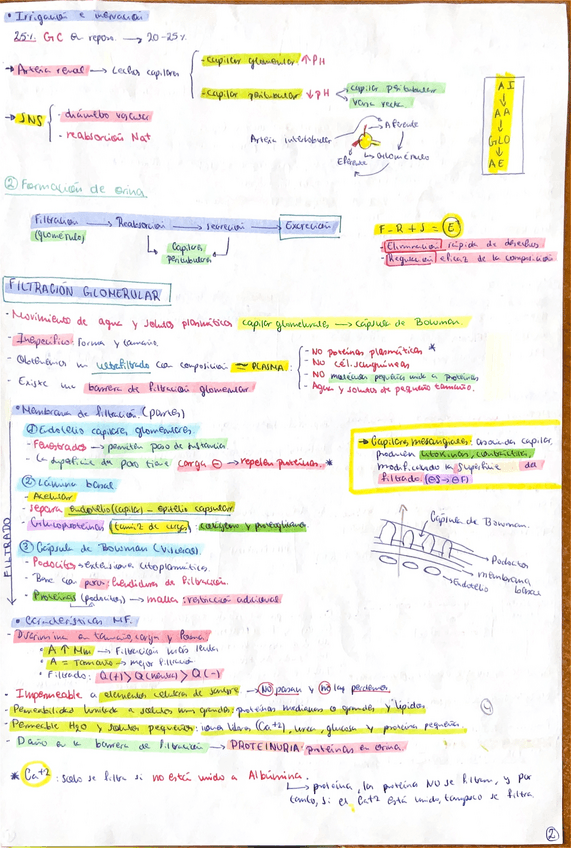 • Irrigación e inervación
25% GC en reposo → 20-25%
→ Arteria renal → Lechos capilares
- capilar glomerular: ↑PH
- capilar peritubular ↓PH
capilar peritubular
Vasa recta
→ SNS
- diámetro vascular
- reabsorción Na+
Arteria interlobular
Aferente
Glomérulo
Eferente
AI
↓
AA
↓
GLO
↓
AE
② Formación de orina
Filtración → Reabsorción → secreción → Excreción
(glomérulo)
Capilares
peritubulares
F - R + S = E
- Eliminación rápida de desechos
- Regulación eficaz de la composición
FILTRACIÓN GLOMERULAR
- Movimiento de agua y solutos plasmáticos capilar glomerulares → Cápsula de Bowman.
- Inespecífico: Forma y tamaño.
- Obtenemos un ultrafiltrado con composición ≈ PLASMA:
- NO proteínas plasmáticas *
- NO cél. sanguíneas
- NO moléculas pequeñas unidas a proteínas
- Agua y solutos de pequeño tamaño.
- Existe una barrera de filtración glomerular.
• Membrana de filtración (partes)
① Endotelio capilares glomerulares
- Fenestrados → permiten paso de sustancias
- La superficie de paso tiene carga ⊖ → repelen proteínas. *
② Lámina basal
- Acelular
- Separa endotelio (capilar) - epitelio capsular
- Glucoproteínas (tamiz de carga): colágeno y proteoglicanos.
③ Cápsula de Bowman (visceral).
- Podocitos → extensiones citoplasmáticas.
- Base con poros: hendiduras de filtración.
- Proteínas (podocitos) → mallas: restricción adicional
FILTRADO
→ Capilares mesangiales: asociadas capilar,
producen citoquinas, contráctiles,
modificando la superficie del
filtrado. (⊖S → ⊖F)
Cápsula de Bowman.
Podocitos
membrana
basal
Endotelio
• Características MF.
- Discrimina en tamaño, carga y forma.
• A ↑ Mm → Filtración más lenta
• A = Tamaño → mejor filtrado
• Filtrado: Q(+) > Q(neutra) > Q(-)
- Impermeable a elementos celulares de sangre → NO pasan y no los perdemos.
- Permeabilidad limitada a solutos muy grandes: proteínas medianas o grandes y lípidos
- Permeable H2O y solutos pequeños: iones libres (Ca+2), urea, glucosa y proteína pequeña
- Daño en la barrera de filtración → PROTEINURIA: proteínas en orina.
* Ca+2: solo se filtra si no está unido a Albúmina.
→ proteína, las proteína NO se filtran, y por
tanto, si el Ca+2 está unido, tampoco se filtra.
②